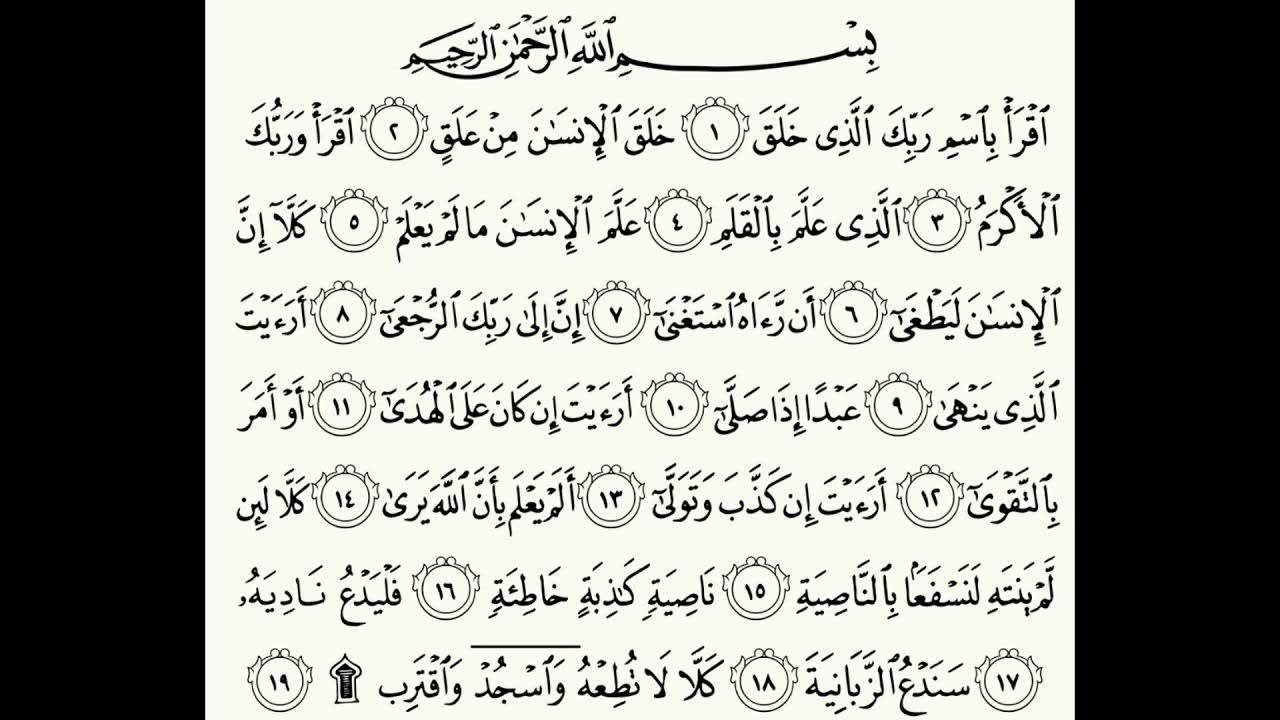 بِسْمِ ٱللَّهِ ٱلرَّحْمَٰنِ ٱلرَّحِيمِ
ٱقْرَأْ بِٱسْمِ رَبِّكَ ٱلَّذِى خَلَقَ ١ خَلَقَ ٱلْإِنسَٰنَ مِنْ عَلَقٍ ٢ ٱقْرَأْ وَرَبُّكَ
ٱلْأَكْرَمُ ٣ ٱلَّذِى عَلَّمَ بِٱلْقَلَمِ ٤ عَلَّمَ ٱلْإِنسَٰنَ مَا لَمْ يَعْلَمْ ٥ كَلَّآ إِنَّ
ٱلْإِنسَٰنَ لَيَطْغَىٰٓ ٦ أَن رَّءَاهُ ٱسْتَغْنَىٰٓ ٧ إِنَّ إِلَىٰ رَبِّكَ ٱلرُّجْعَىٰٓ ٨ أَرَءَيْتَ
ٱلَّذِى يَنْهَىٰ ٩ عَبْدًا إِذَا صَلَّىٰٓ ١٠ أَرَءَيْتَ إِن كَانَ عَلَى ٱلْهُدَىٰٓ ١١ أَوْ أَمَرَ
بِٱلتَّقْوَىٰٓ ١٢ أَرَءَيْتَ إِن كَذَّبَ وَتَوَلَّىٰٓ ١٣ أَلَمْ يَعْلَم بِأَنَّ ٱللَّهَ يَرَىٰ ١٤ كَلَّا لَئِن
لَّمْ يَنتَهِ لَنَسْفَعًۢا بِٱلنَّاصِيَةِ ١٥ نَاصِيَةٍ كَٰذِبَةٍ خَاطِئَةٍ ١٦ فَلْيَدْعُ نَادِيَهُۥ
١٧ سَنَدْعُ ٱلزَّبَانِيَةَ ١٨ كَلَّا لَا تُطِعْهُ وَٱسْجُدْ وَٱقْتَرِب ۩ ١٩